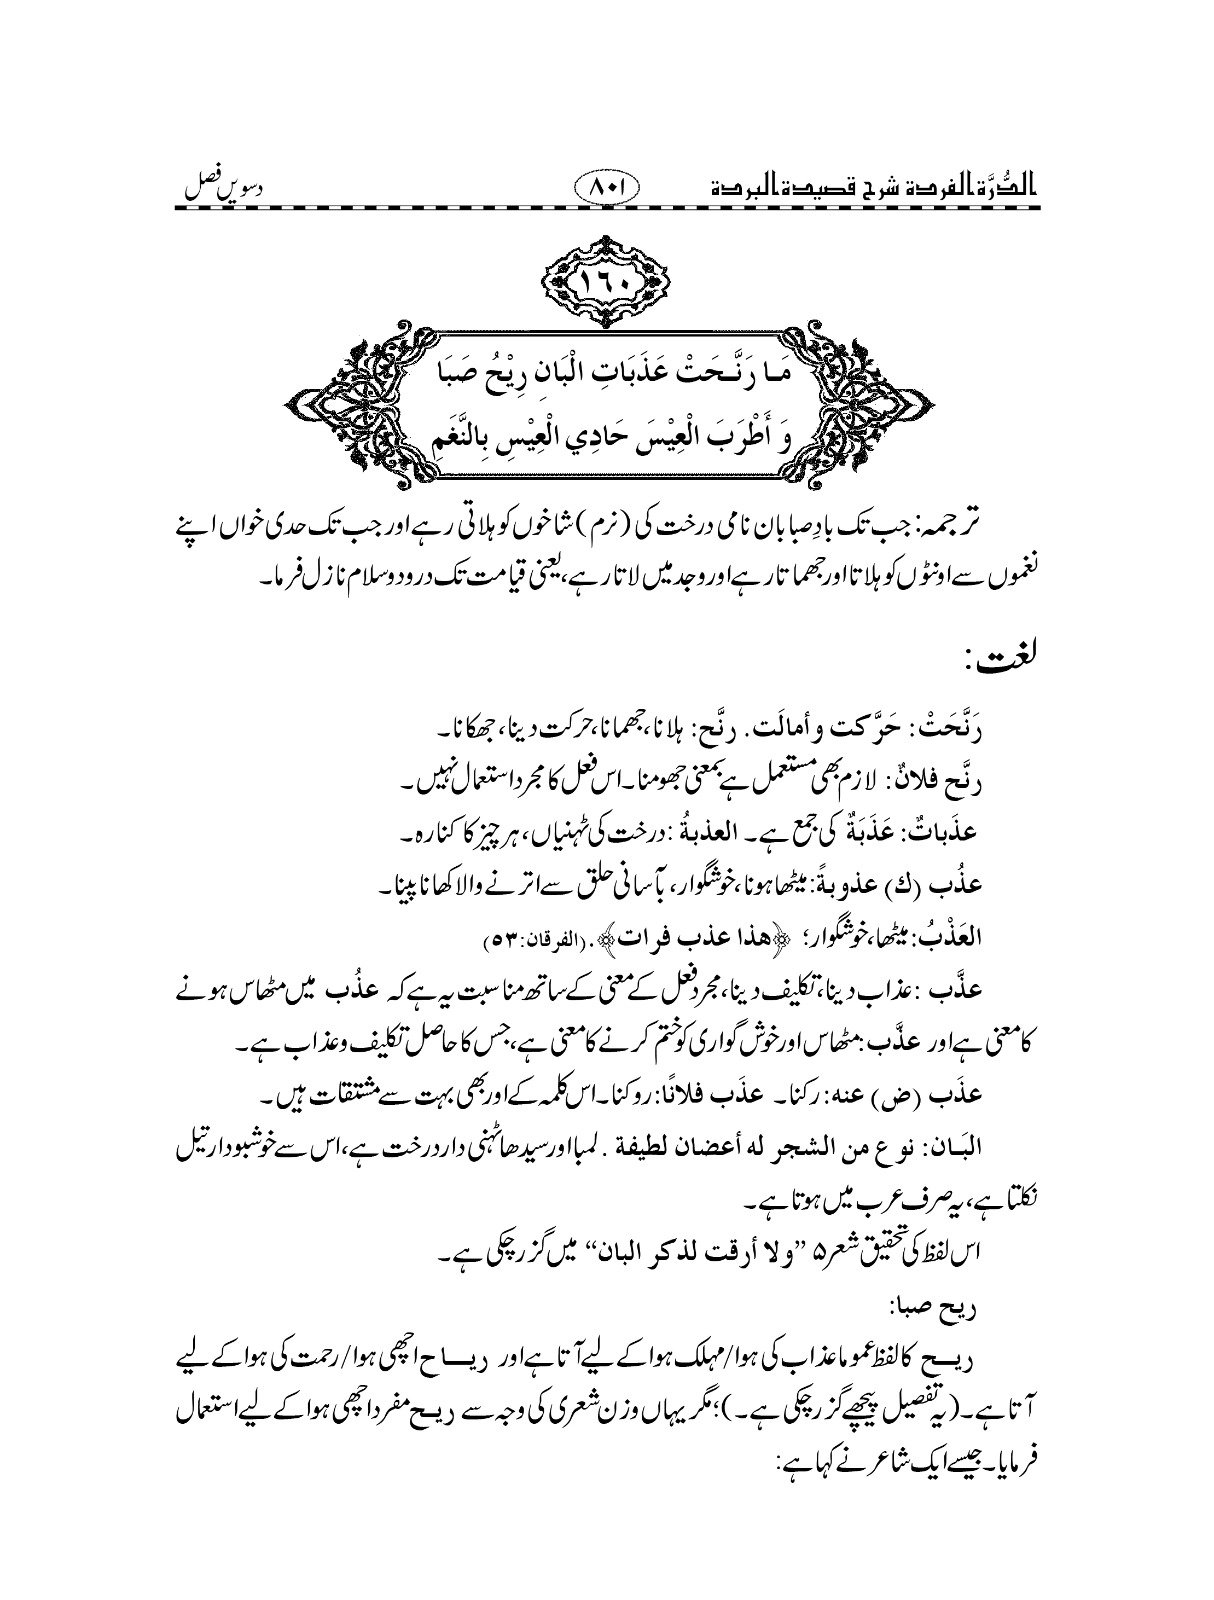 الدُّرَّة الفردة شرح قصيدة البردة
٨٠١
دسویں فصل
١٦٠
مَا رَنَّحَتْ عَذَبَاتِ الْبَانِ رِيْحُ صَبَا
وَ أَطْرَبَ الْعِيْسَ حَادِي الْعِيْسِ بِالنَّغَمِ
ترجمہ: جب تک بادِصبا بان نامی درخت کی (نرم) شاخوں کو ہلاتی رہے اور جب تک حدی خواں اپنے
نغموں سے اونٹوں کو ہلاتا اور جھماتا رہے اور وجد میں لاتا رہے، یعنی قیامت تک درود و سلام نازل فرما۔
لغت:
رَنَّحَتْ: حَرَّکت وأمالَت. رنَّح: ہلانا، جھمانا، حرکت دینا، جھکانا۔
رنَّح فلانٌ: لازم بھی مستعمل ہے بمعنی جھومنا۔ اس فعل کا مجرد استعمال نہیں۔
عذَباتٌ: عَذَبَةٌ کی جمع ہے۔ العذبةُ: درخت کی ٹہنیاں، ہر چیز کا کنارہ۔
عذُب (ك) عذوبةً: میٹھا ہونا، خوشگوار، بآسانی حلق سے اترنے والا کھانا پینا۔
العَذْبُ: میٹھا، خوشگوار؛ ﴿هذا عذب فرات﴾. (الفرقان:٥٣)
عذَّب: عذاب دینا، تکلیف دینا، مجرد فعل کے معنی کے ساتھ مناسبت یہ ہے کہ عذُب میں مٹھاس ہونے
کا معنی ہے اور عذَّب: مٹھاس اور خوش گواری کو ختم کرنے کا معنی ہے، جس کا حاصل تکلیف و عذاب ہے۔
عذَب (ض) عنه: رکنا۔ عذَب فلانًا: روکنا۔ اس کلمہ کے اور بھی بہت سے مشتقات ہیں۔
البَان: نوع من الشجر له أعضان لطيفة. لمبا اور سیدھا ٹہنی دار درخت ہے، اس سے خوشبودار تیل
نکلتا ہے، یہ صرف عرب میں ہوتا ہے۔
اس لفظ کی تحقیق شعر ۵ ”ولا أرقت لذكر البان“ میں گزر چکی ہے۔
ريح صبا:
ريح کا لفظ عموما عذاب کی ہوا/مہلک ہوا کے لیے آتا ہے اور رياح اچھی ہوا/رحمت کی ہوا کے لیے
آتا ہے۔ (یہ تفصیل پیچھے گزر چکی ہے۔)؛ مگر یہاں وزن شعری کی وجہ سے ريح مفرد اچھی ہوا کے لیے استعمال
فرمایا۔ جیسے ایک شاعر نے کہا ہے: